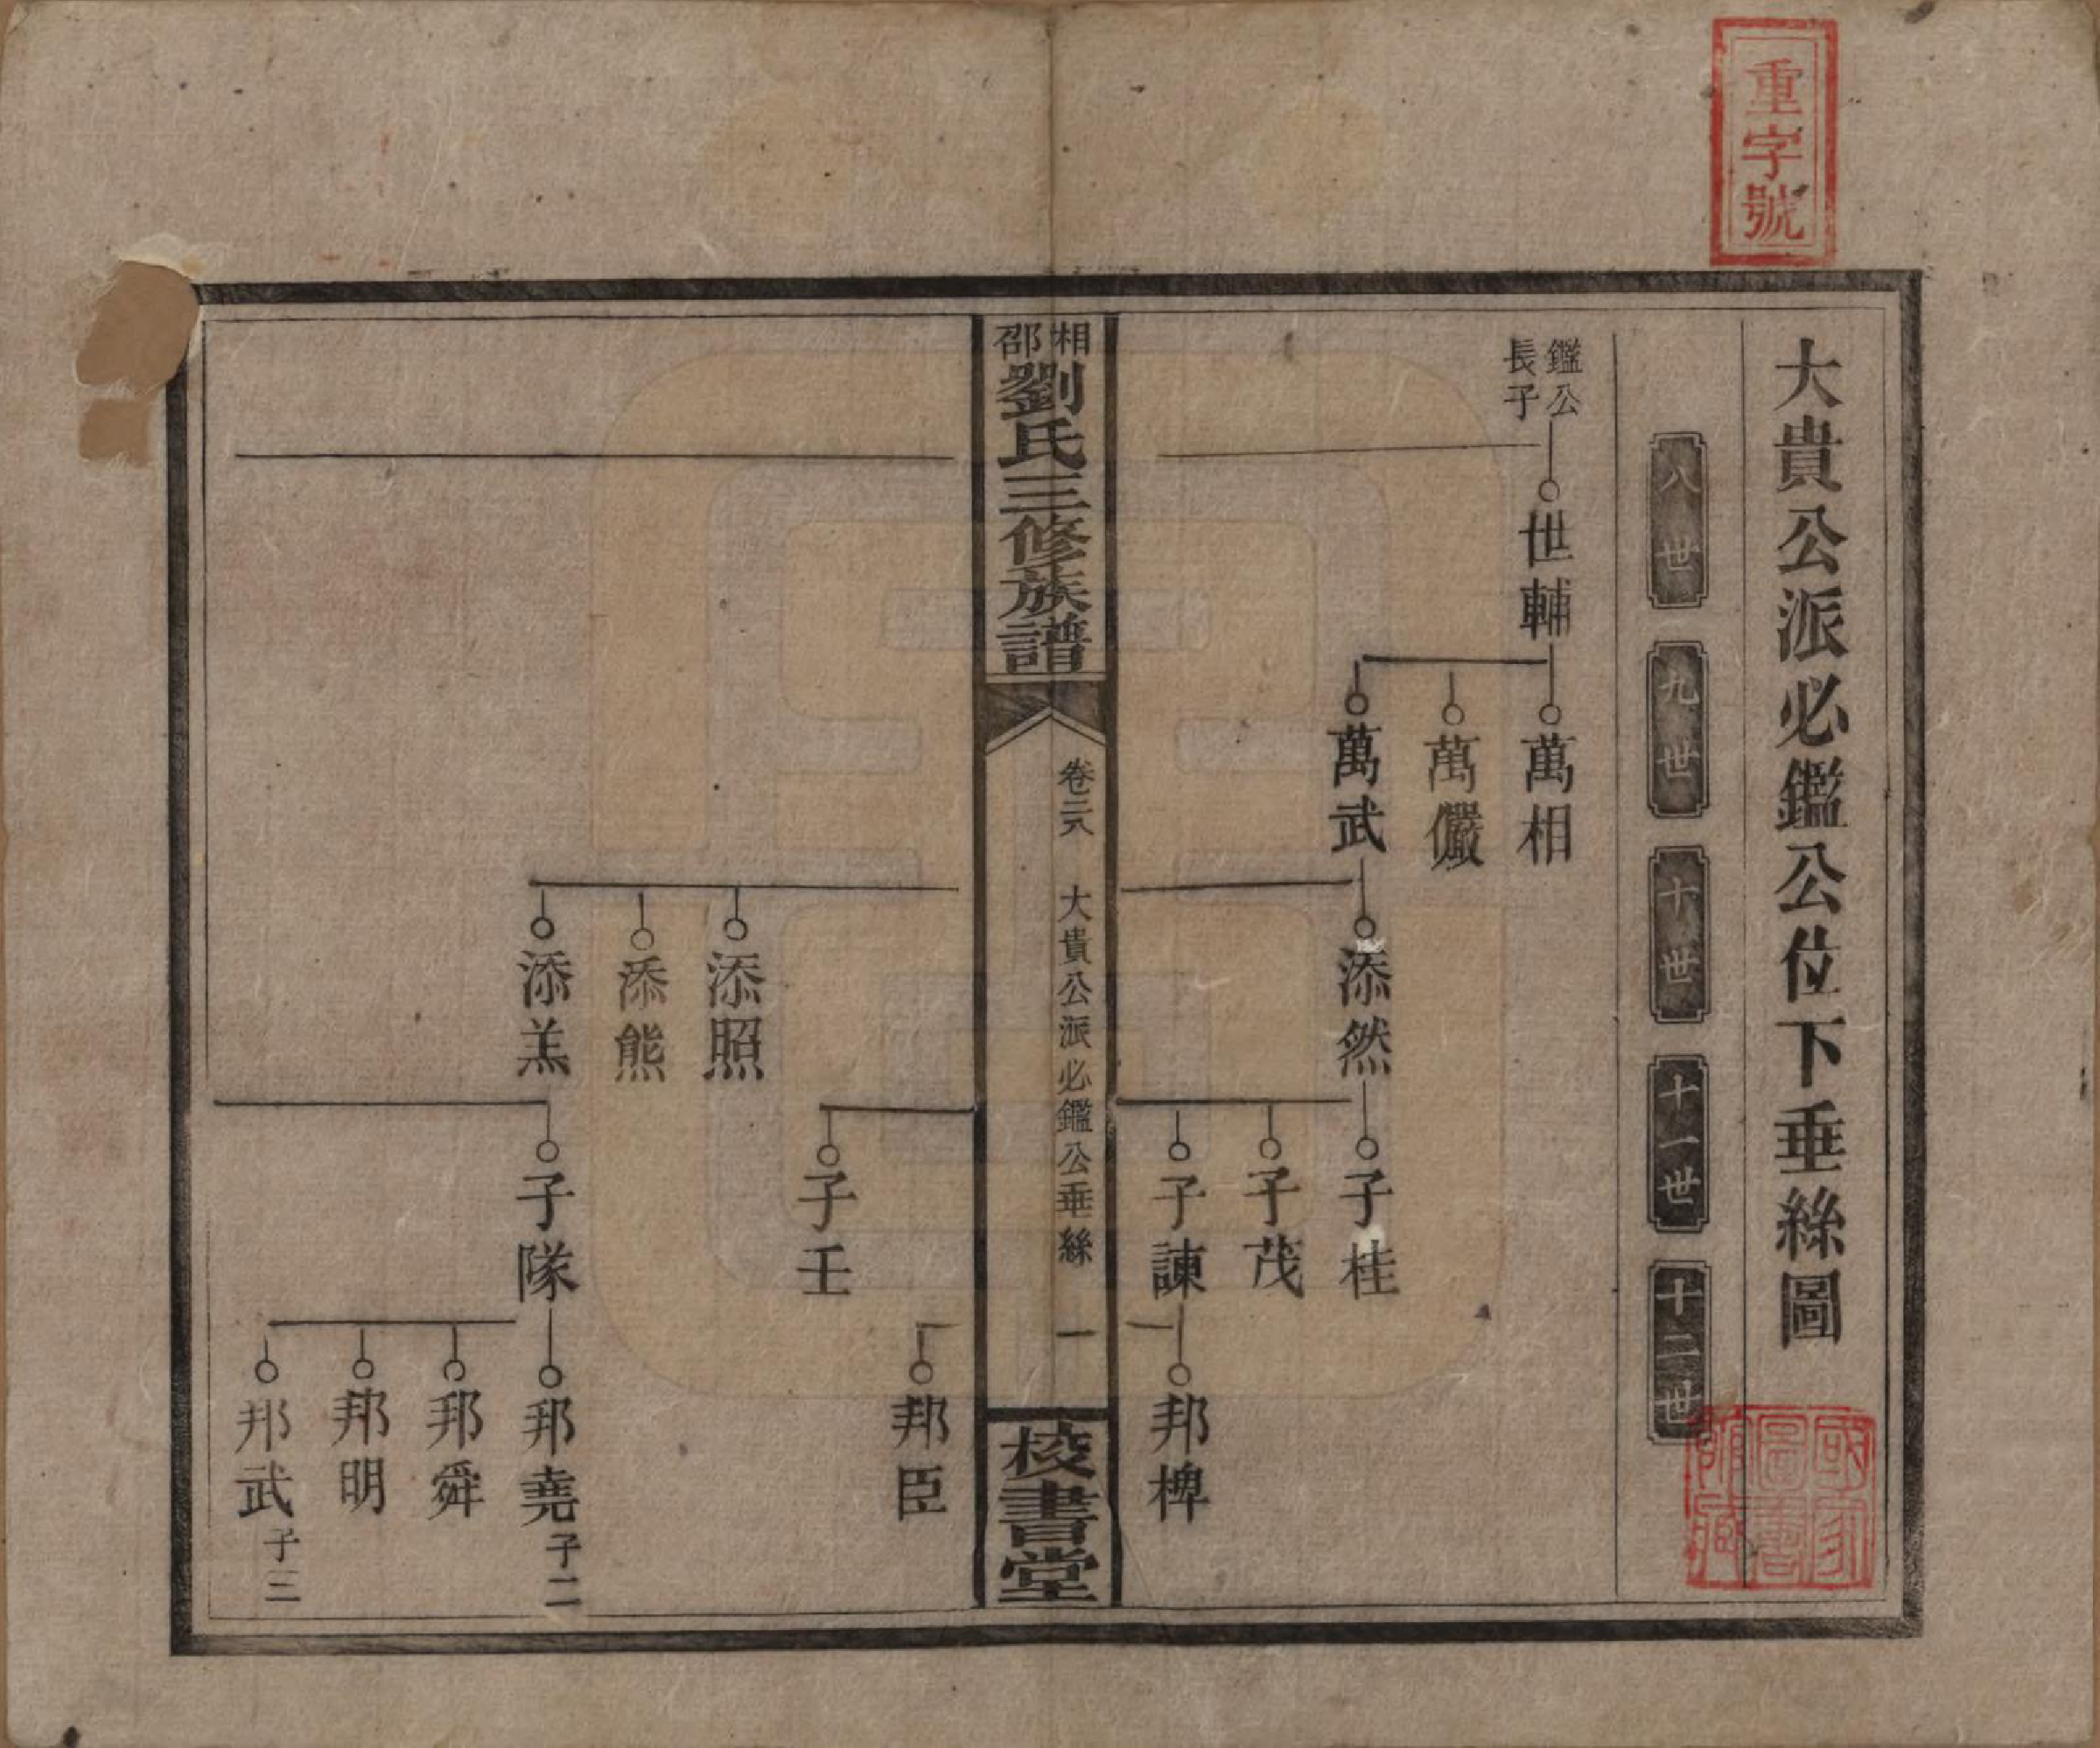 重字號
大貴公派必鑑公位下垂絲圖
八世
九世
十世
十一世
十二世
國家圖書館藏
鑑公
長子
世輔
萬相
萬儼
萬武
添然
子桂
子茂
子諫
邦椑
湘邵劉氏三修族譜
卷二八
大貴公派必鑑公垂絲
一
校書堂
子壬
邦臣
添照
添熊
添羔
子隊
邦堯 子二
邦舜
邦明
邦武 子三